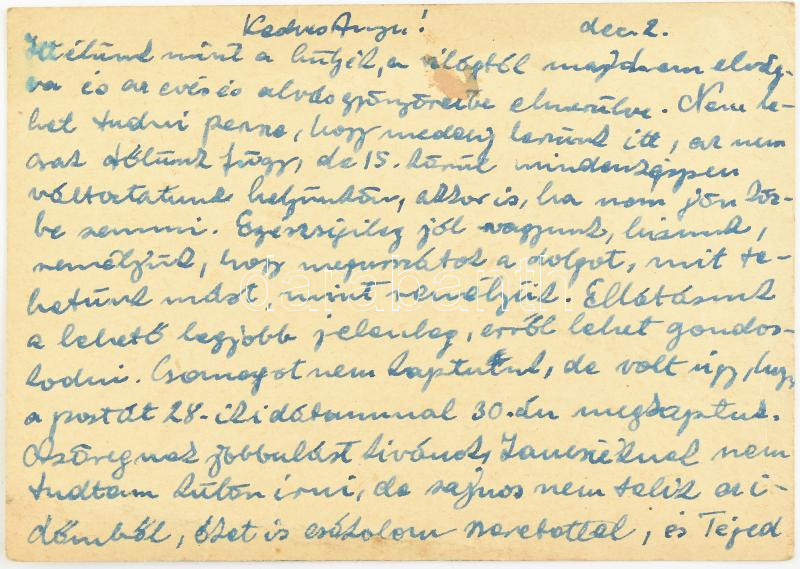 Kedves Anyu! dec. 2.
Itt élünk mint a hülyék, a világtól majdnem elvág-
va és az evés és alvás gyönyöreibe elmerülve. Nem le-
het tudni persze, hogy meddig leszünk itt, az nem
csak rólunk függ, de 15. körül mindenképpen
változtatunk helyünkön, akkor is, ha nem jön köz-
be semmi. Egészségileg jól vagyunk, bízunk,
reméljük, hogy megússzátok a dolgot, mit te-
hetünk mást, mint reméljük. Ellátásunk
a lehető legjobb jelenleg, erről lehet gondos-
kodni. Csomagot nem kaptunk, de volt úgy, hogy
a postát 28-iki dátummal 30-án megkaptuk.
Az öregnek jobbulást kívánok, Jancsiéknak nem
tudtam külön írni, de sajnos nem telik az i-
dőmből, őket is csókolom szeretettel, és Téged
darabanth